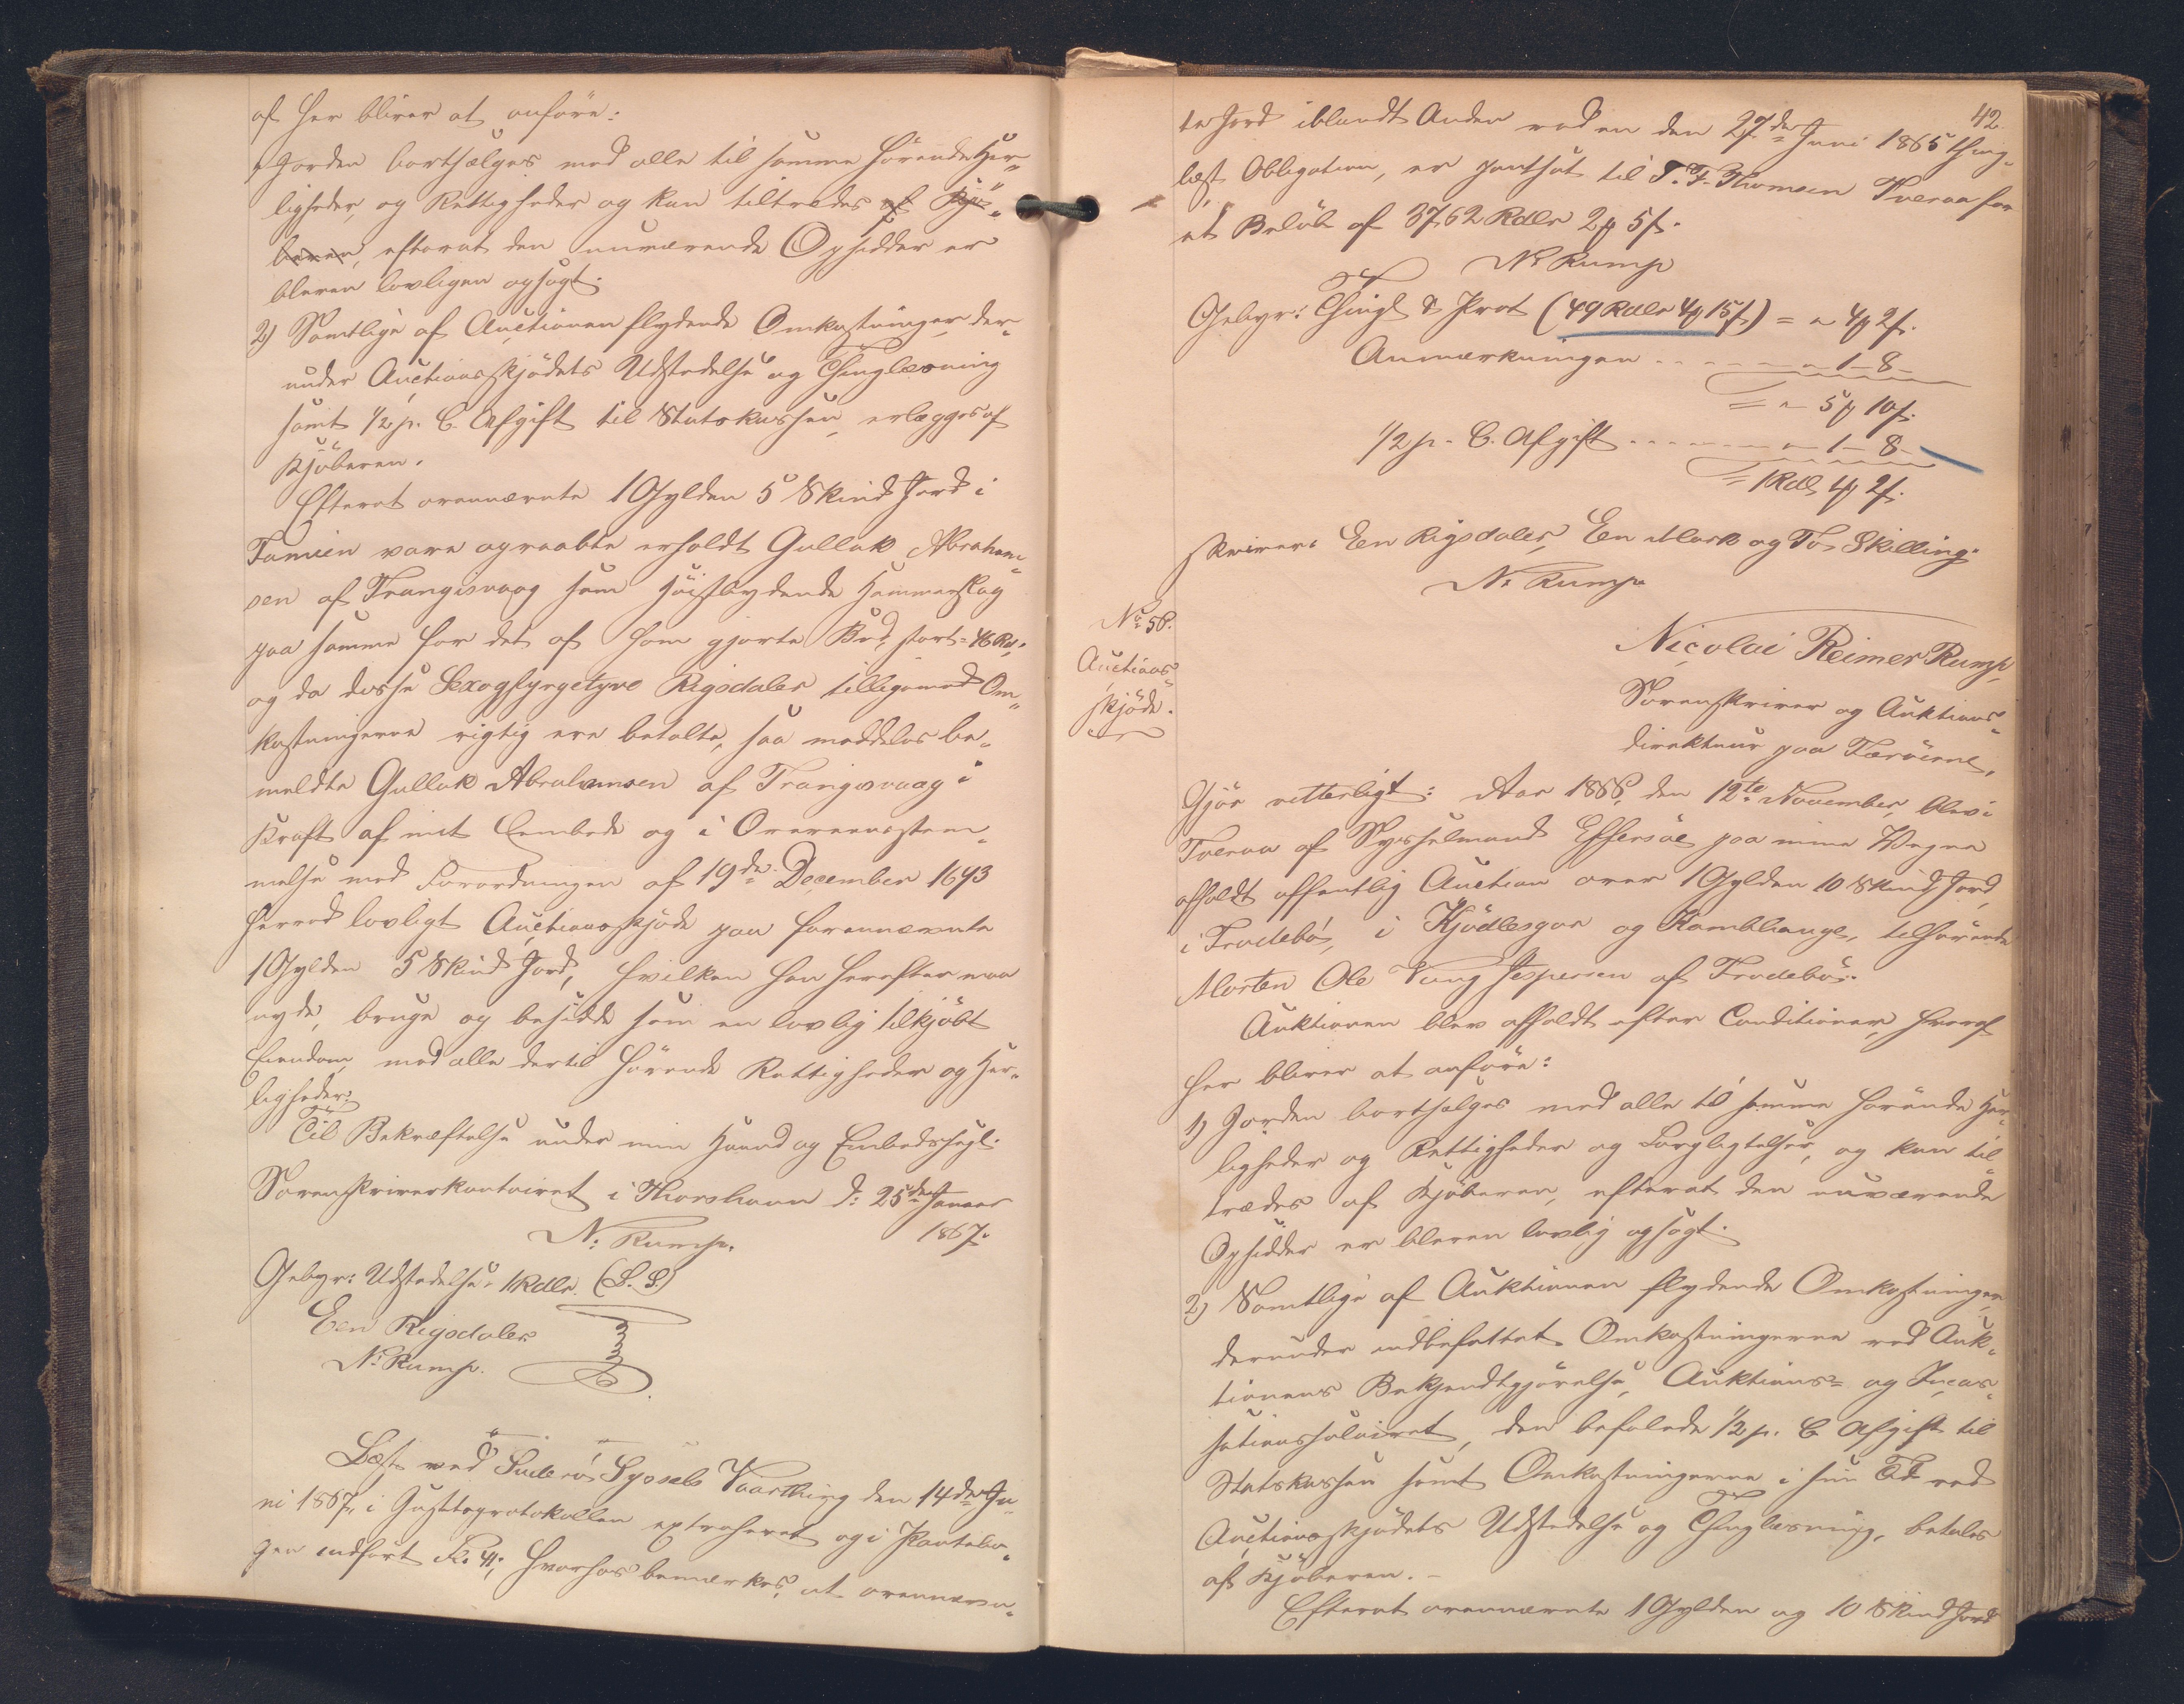 af her bliver at anføre:
1 Jorden bortsælges med alle til samme hørende Her„
ligheder, og Rettigheder og kan tiltrædes af Kjø„
beren, efterat den nuværende Opsidder er
bleven lovligen opsagt.
2) Samtlige af Auctionen flydende Omkostninger, der„
under Auctionsskjødets Udstedelse og Thinglæsning
samt 1/2 p. C. Afgift til Statskassen, erlægges af
Kjøberen.
Efterat ovennævnte 1 Gylden 5 Skind Jord i
Famien vare opraabte erholdt Gullak Abraham„
sen af Trangisvaag som høistbydende Hammerslag
paa samme for det af ham gjorte Bud, stort = 46 Rd,
og da disse Sexogfyrgetyve Rigsdaler tilligemed Om„
kostningerne rigtig ere betalte, saa meddeles be„
meldte Gullak Abrahamsen af Trangisvaag i
Kraft af mit Embede og i Overeensstem„
melse med Forordningen af 19de December 1693
herved lovligt Auctionsskjøde paa forannævnte
1 Gylden 5 Skind Jord, hvilken han herefter maa
nyde, bruge og besidde som en lovlig tilkjøbt
Eiendom, med alle dertil hørende Rettigheder og Her„
ligheder.
Til Bekræftelse under min Haand og Embedssegl.
Sorenskriverkontoiret i Thorshavn d: 25de Januar
1867.
N: Rump.
Gebyr: Udstedelse: 1 Rdlr. (L. S.)
Een Rigsdaler
N: Rump.
Læst ved Suderø Syssels Vaarthing den 14de Ju„
ni 1867, i Justitsprotokollen extraheret og i Pantebo„
gen indført Fo. 41; hvorhos bemærkes, at ovennævn„
42.
te Jord iblandt Anden ved en den 27de Juni 1865 thing„
læst Obligation, er pantsat til T. F. Thomsen Tveraa for
et Beløb af 3762 Rdlr 2 ₰ 5 s.
N: Rump
Gebyr: Thingl & Prot (49 Rdlr 4 ₰ 15 s.) = " 4 ₰ 2 s.
Anmærkningen - - - - - " 1 – 8 –
= " 5 ₰ 10 s.
1/2 p. C. Afgift - - - - - " 1 – 8 –
= 1 Rdlr 1 ₰ 2 s.
skriver: Een Rigsdaler, Een Mark og To Skilling.
N: Rump
No 58.
Auctions„
skjøde.
Nicolai Reimer Rump,
Sorenskriver og Auktions„
direkteur paa Færøerne,
Gjør vitterligt: Aar 1866, den 12te November, blev i
Tveraa af Sysselmand Effersøe paa mine Vegne
afholdt offentlig Auction over 1 Gylden 10 Skind Jord,
i Frodebø, i Kjødlesgar og Kamblhauge, tilhørende
Morten Ole Vang Jespersen af Frodebø.
Auktionen blev afholdt efter Conditioner, hvoraf
her bliver at anføre:
1) Jorden bortsælges med alle til samme hørende Her„
ligheder og Rettigheder og Forpligtelser, og kan til„
trædes af Kjøberen, efterat den nuværende
Opsidder er bleven lovlig opsagt.
2) Samtlige af Auktionen flydende Omkostninger
derunder indbefattet Omkostningerne ved Auk„
tionens Bekjendtgjørelse, Auktions= og Incas„
sationssalairet, den befalede 1/2 p. C Afgift til
Statskassen samt Omkostningerne i sin Tid ved
Auctionsskjødets Udstedelse og Thinglæsning, betales
af Kjøberen. –
Efterat ovennævnte 1 Gylden og 10 Skind Jord